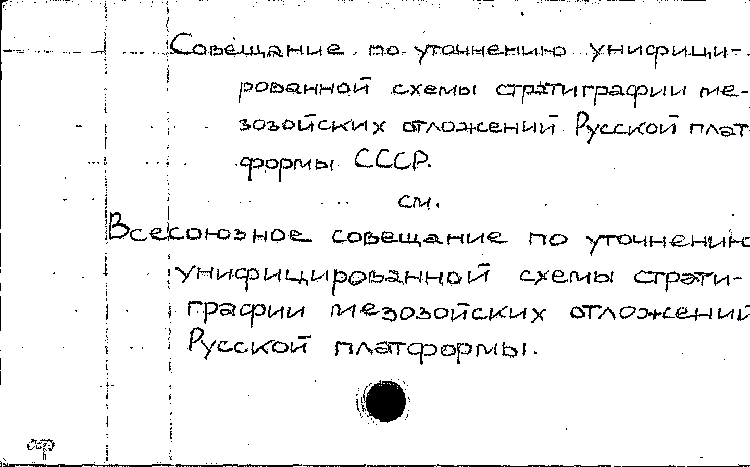 Совещание по уточнению унифици-
рованной схемы стратиграфии ме-
зозойских отложений Русской плат
формы СССР.
см.
Всесоюзное совещание по уточнению
унифицированной схемы страти-
графии мезозойских отложений
Русской платформы.